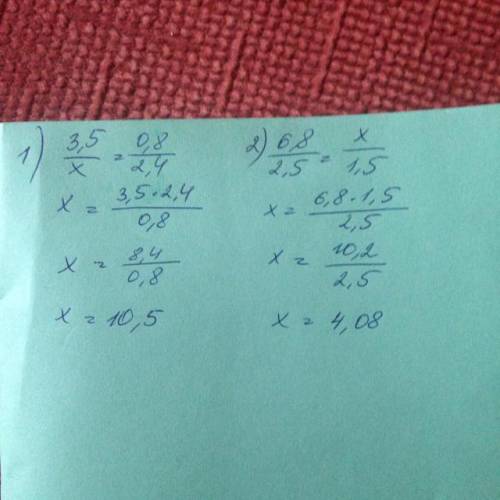 1) 3,5/x = 0,8/2,4
x = 3,5·2,4/0,8
x = 8,4/0,8
x = 10,5
2) 6,8/2,5 = x/1,5
x = 6,8·1,5/2,5
x = 10,2/2,5
x = 4,08